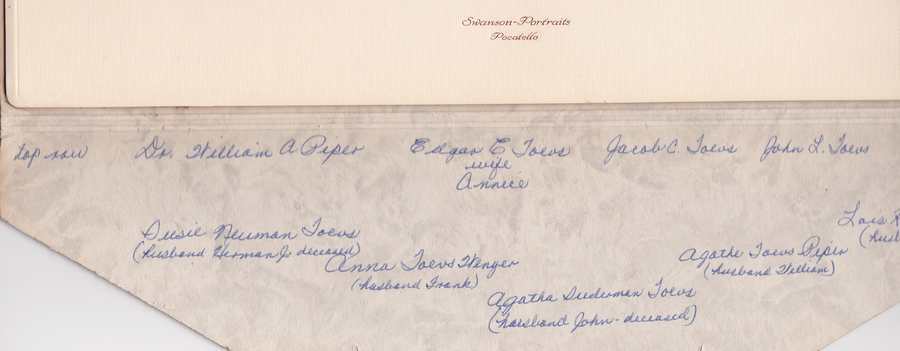 Swanson-Portraits
Pocatello
top row Dr. William A Piper Edgar E Toevs Jacob C. Toevs John L. Toevs
wife
Annie
Susie Neuman Toevs
(husband Herman J. deceased)
Anna Toevs Wenger
(husband Frank)
Agatha Suderman Toevs
(husband John - deceased)
Agathe Toevs Piper
(husband William)
Lois R
(husb